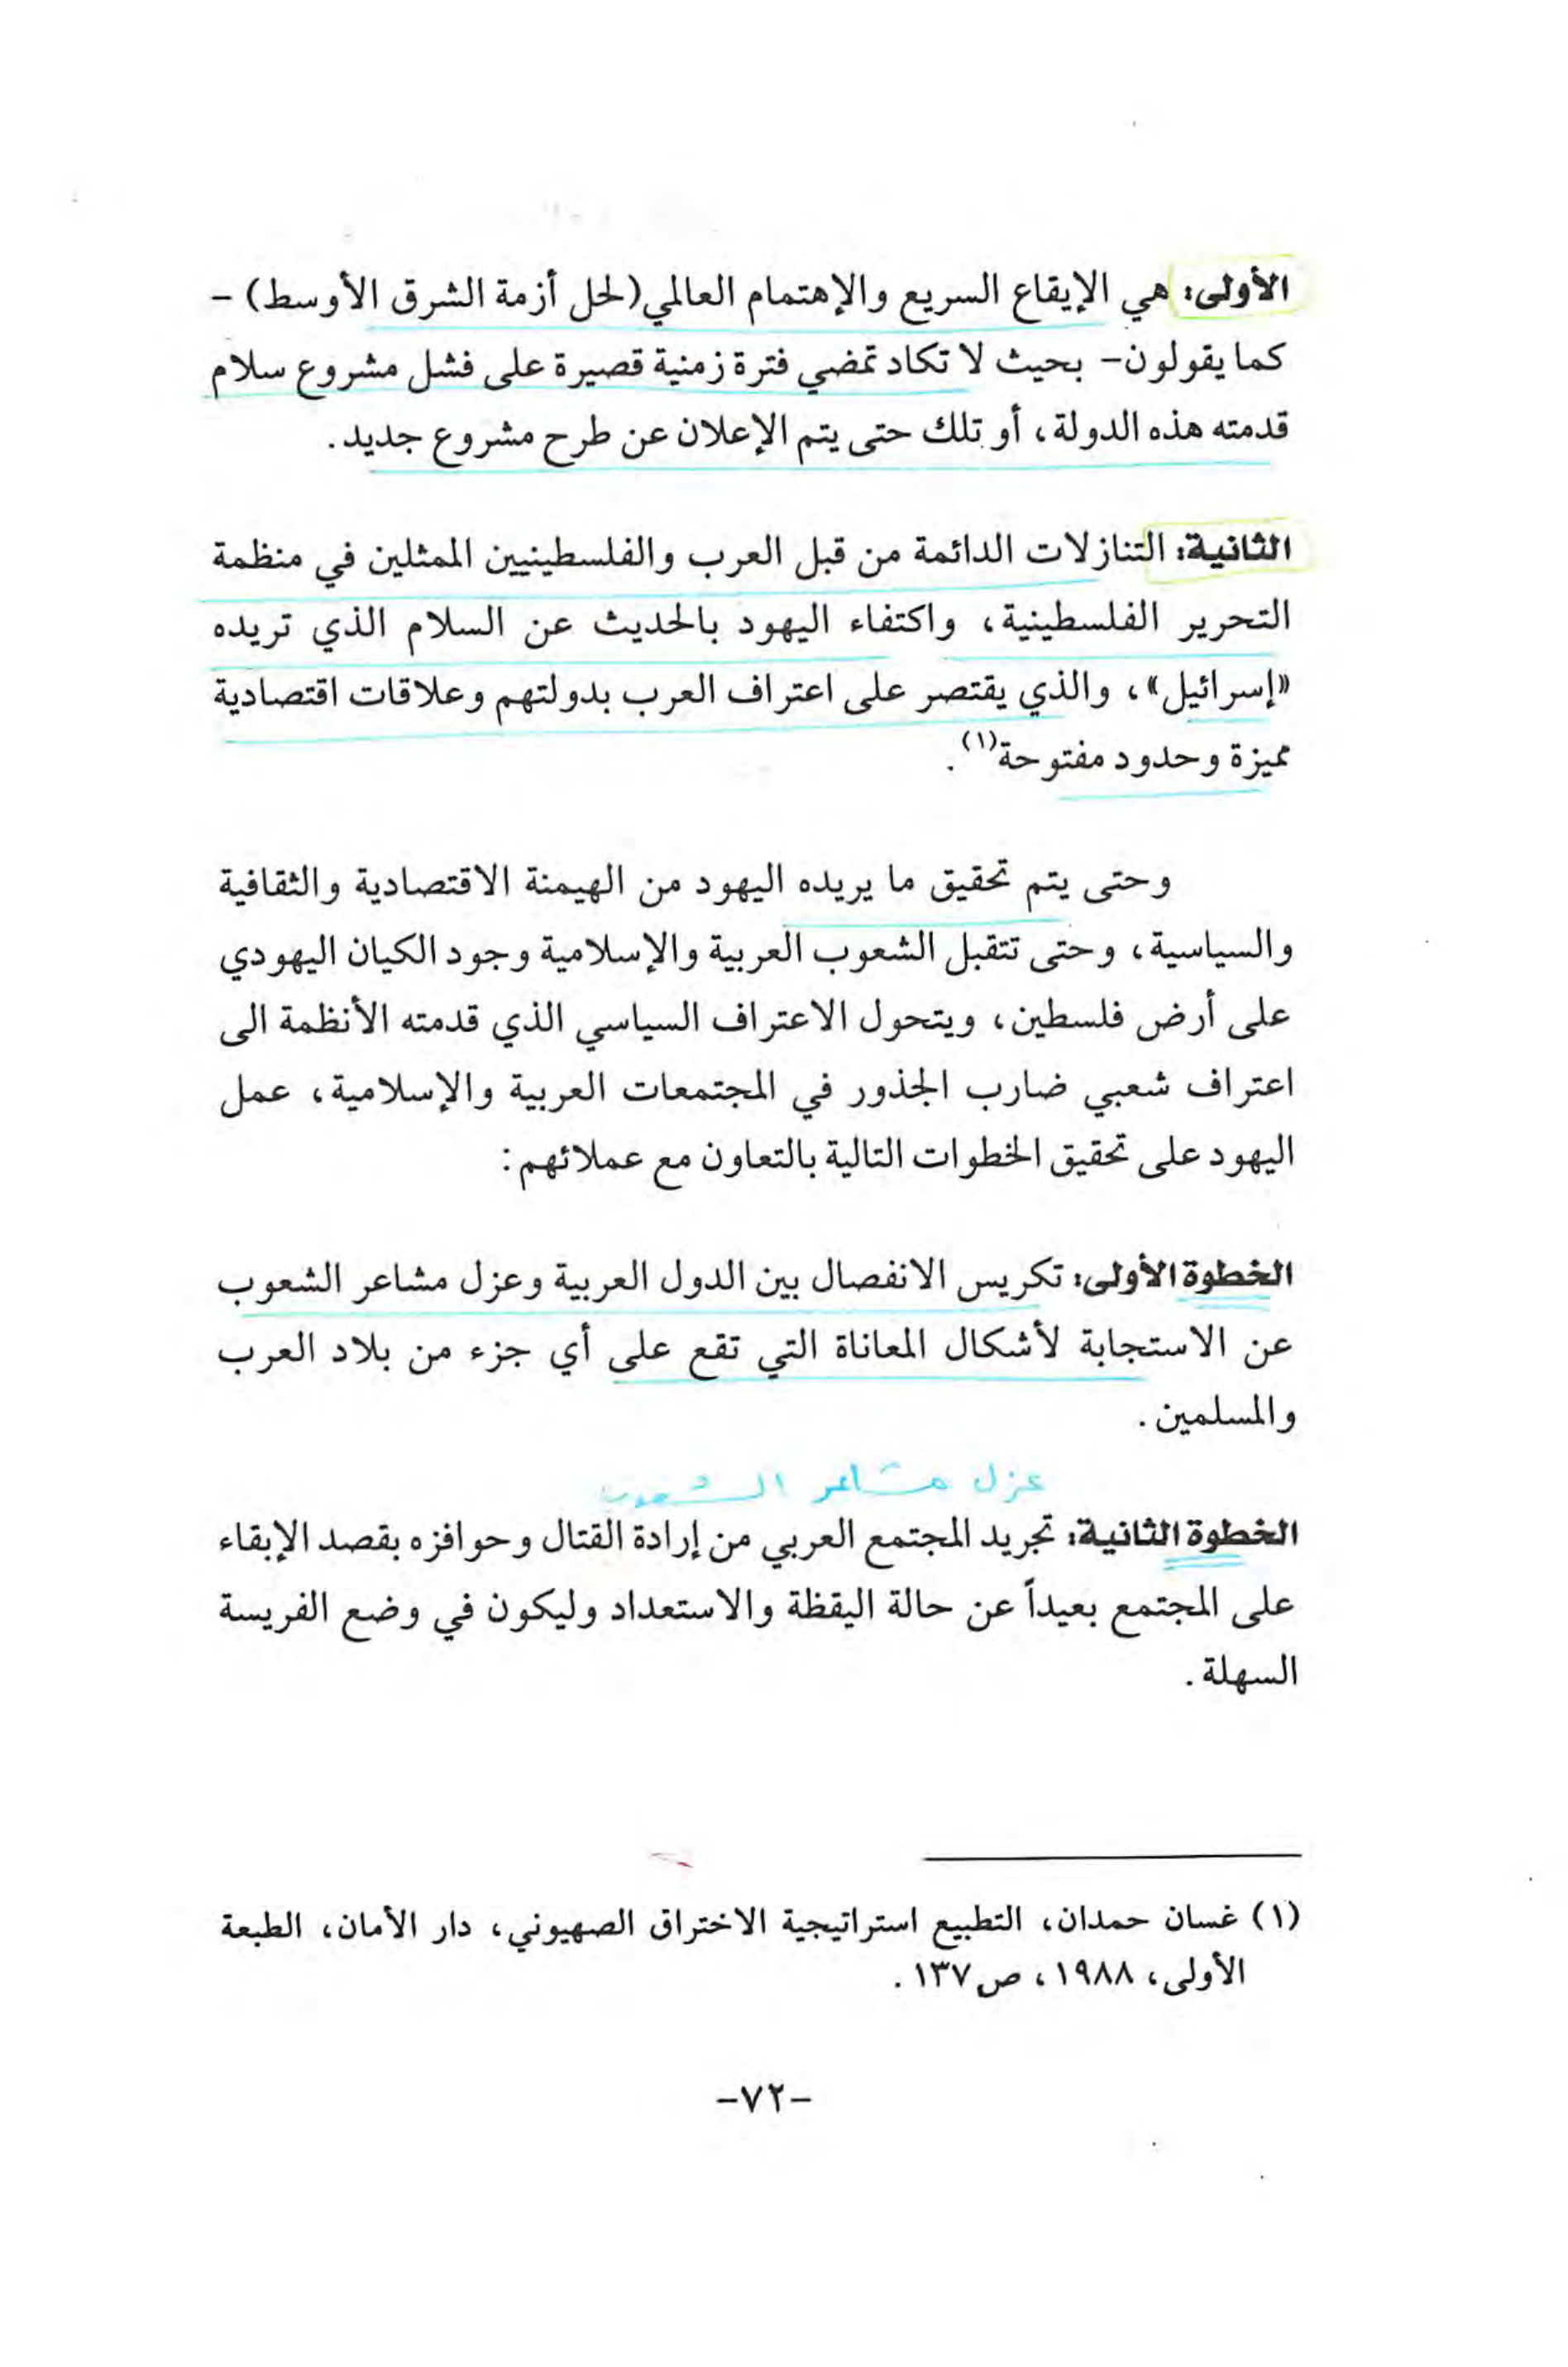 الأولى: هي الإيقاع السريع والإهتمام العالمي (لحل أزمة الشرق الأوسط) -
كما يقولون- بحيث لا تكاد تمضي فترة زمنية قصيرة على فشل مشروع سلام
قدمته هذه الدولة، أو تلك حتى يتم الإعلان عن طرح مشروع جديد.
الثانية: التنازلات الدائمة من قبل العرب والفلسطينيين الممثلين في منظمة
التحرير الفلسطينية، واكتفاء اليهود بالحديث عن السلام الذي تريده
«إسرائيل»، والذي يقتصر على اعتراف العرب بدولتهم وعلاقات اقتصادية
مميزة وحدود مفتوحة(١).
وحتى يتم تحقيق ما يريده اليهود من الهيمنة الاقتصادية والثقافية
والسياسية، وحتى تتقبل الشعوب العربية والإسلامية وجود الكيان اليهودي
على أرض فلسطين، ويتحول الاعتراف السياسي الذي قدمته الأنظمة الى
اعتراف شعبي ضارب الجذور في المجتمعات العربية والإسلامية، عمل
اليهود على تحقيق الخطوات التالية بالتعاون مع عملائهم:
الخطوة الأولى: تكريس الانفصال بين الدول العربية وعزل مشاعر الشعوب
عن الاستجابة لأشكال المعاناة التي تقع على أي جزء من بلاد العرب
والمسلمين.
عزل مشاعر الشعوب
الخطوة الثانية: تجريد المجتمع العربي من إرادة القتال وحوافزه بقصد الإبقاء
على المجتمع بعيداً عن حالة اليقظة والاستعداد وليكون في وضع الفريسة
السهلة.
(١) غسان حمدان، التطبيع استراتيجية الاختراق الصهيوني، دار الأمان، الطبعة
الأولى، ١٩٨٨، ص١٣٧.
-٧٢-